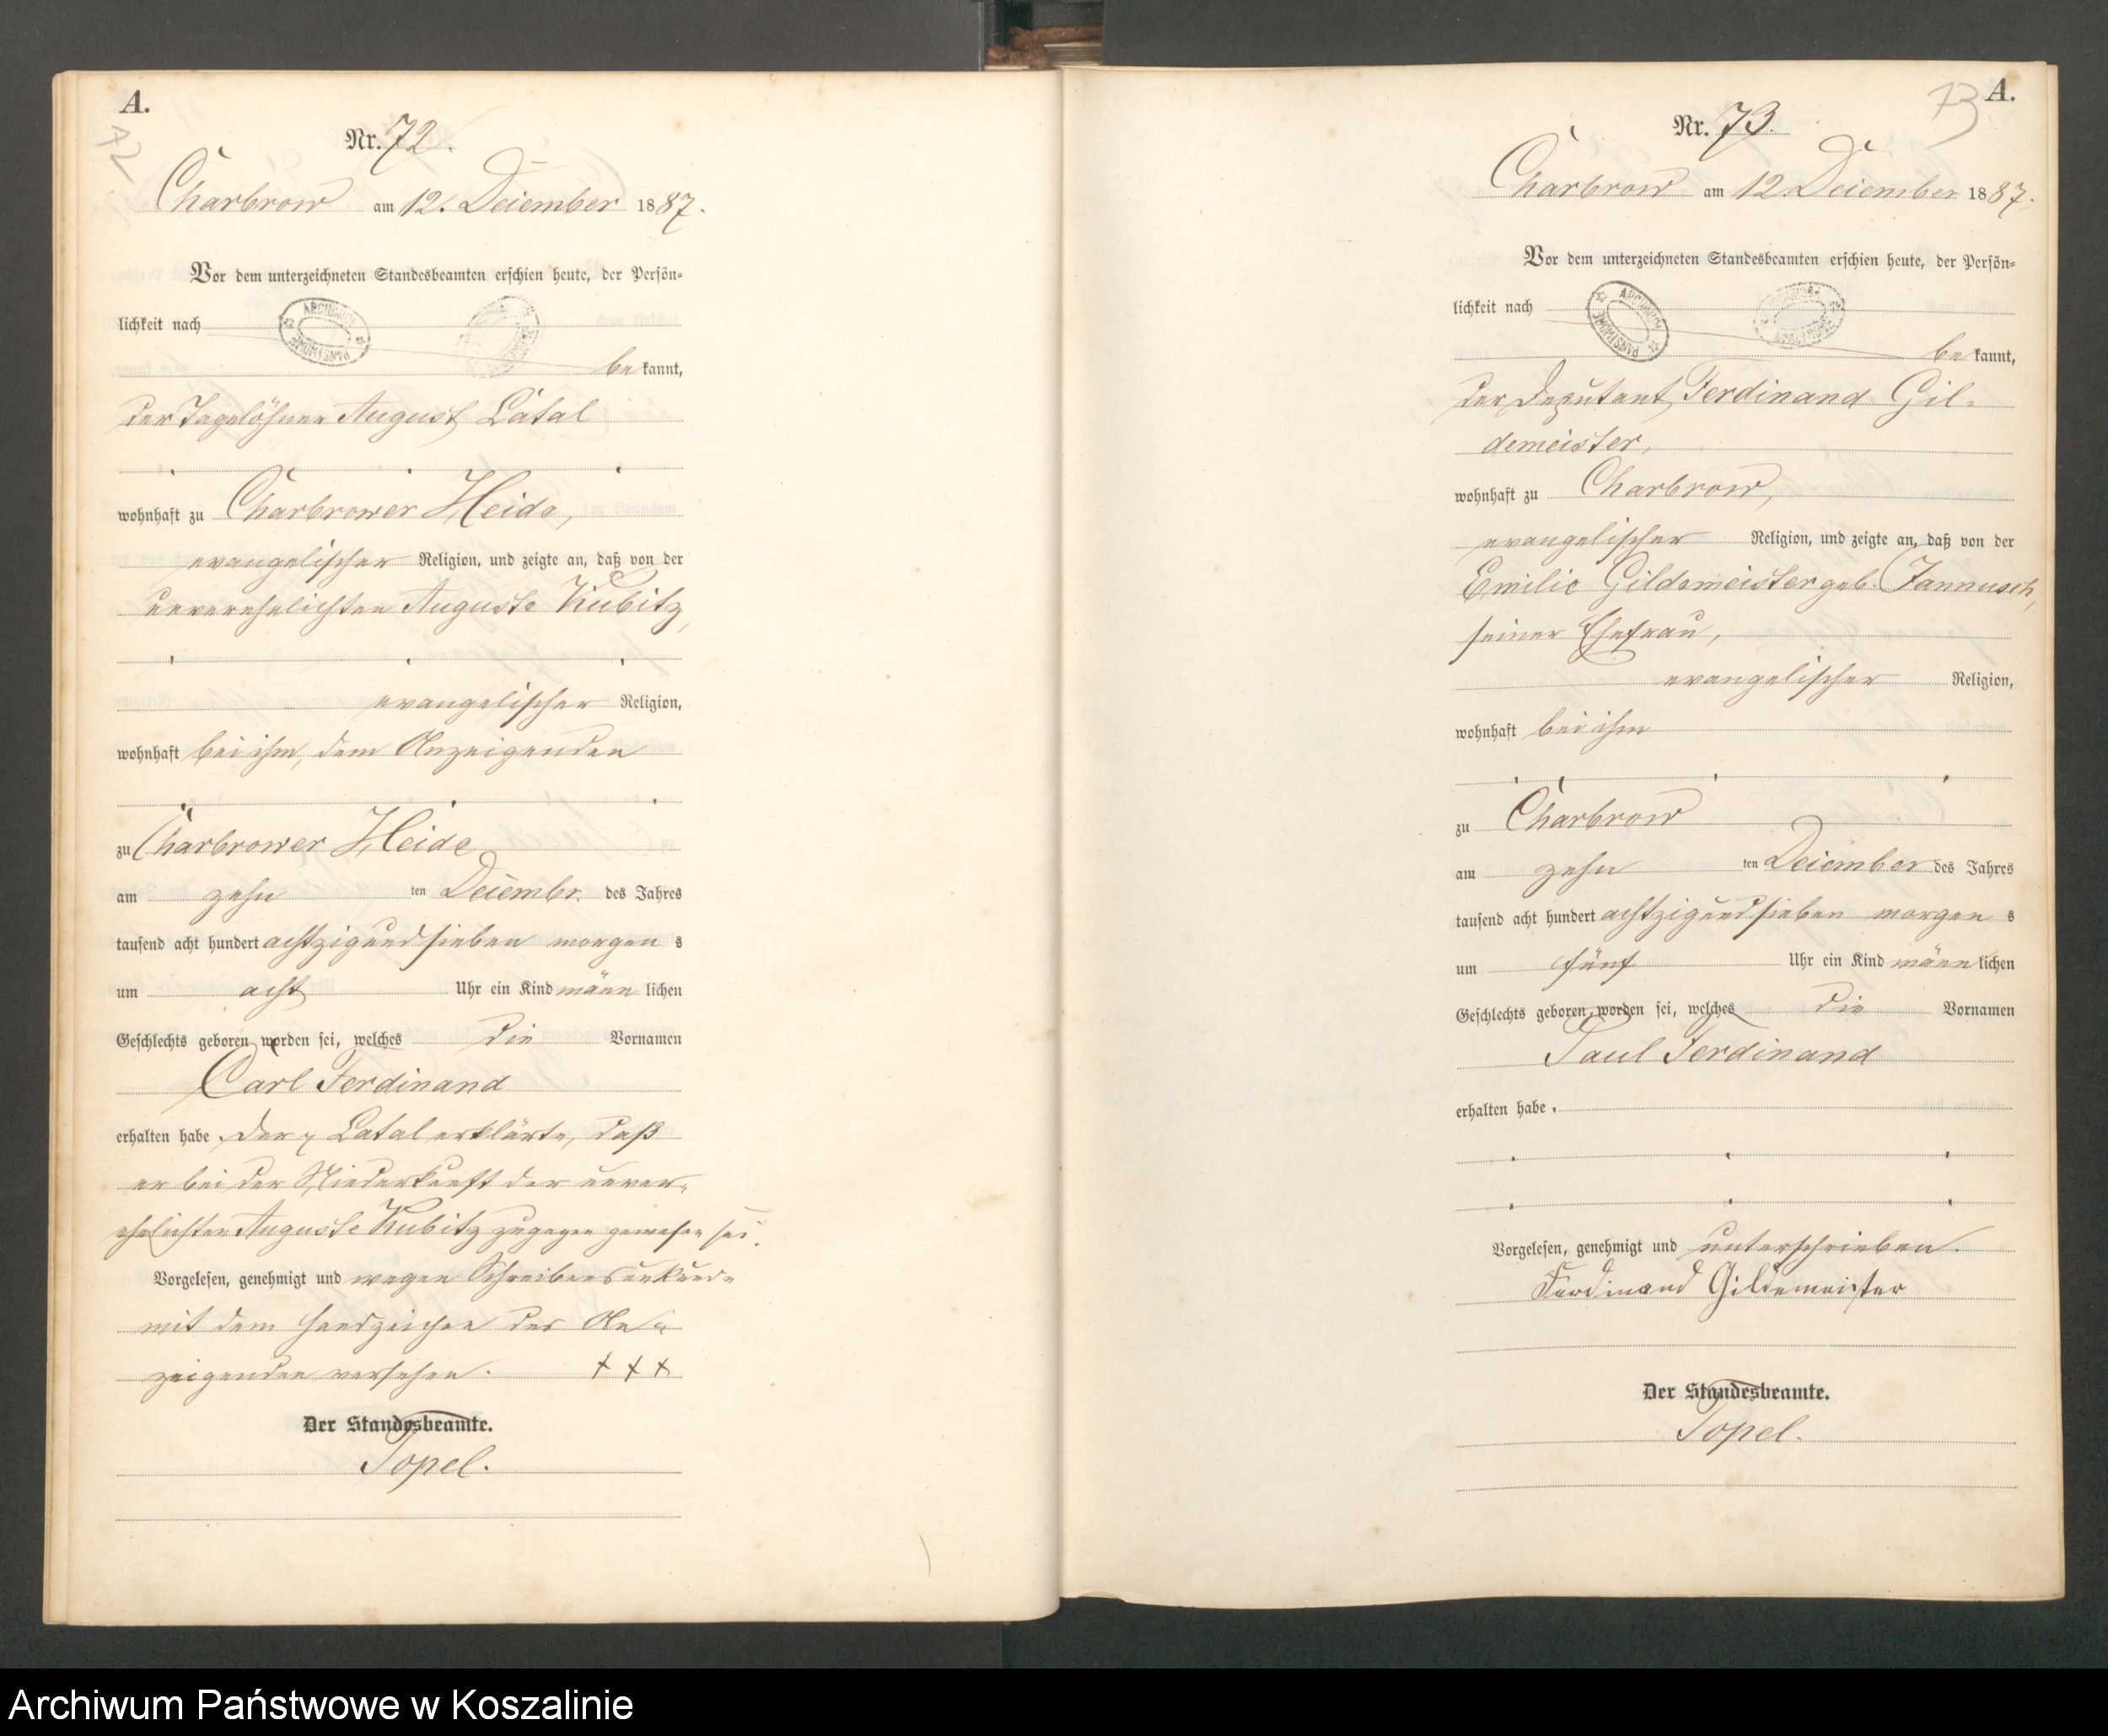 A.
72
Nr. 72.
Charbrow am 12. December 1887.
Vor dem unterzeichneten Standesbeamten erschien heute, der Persön-
lichkeit nach
bekannt,
der Tagelöhner August Latal
wohnhaft zu Charbrower Heide,
evangelischer Religion, und zeigte an, daß von der
unverehelichten Auguste Kubitz,
evangelischer Religion,
wohnhaft bei ihm, dem Anzeigenden
zu Charbrower Heide
am zehn ten Decembr. des Jahres
tausend acht hundert achtzig und sieben morgens
um acht Uhr ein Kind männlichen
Geschlechts geboren worden sei, welches die Vornamen
Carl Ferdinand
erhalten habe. Der Latal erklärte, daß
er bei der Niederkunft der unver-
ehelichten Auguste Kubitz zugegen gewesen sei.
Vorgelesen, genehmigt und wegen Schreibensunkunde
mit dem Handzeichen des An-
zeigenden versehen. + + +
Der Standesbeamte.
Topel.
A.
73
Nr. 73.
Charbrow am 12 December 1887.
Vor dem unterzeichneten Standesbeamten erschien heute, der Persön-
lichkeit nach
bekannt,
der Deputant Ferdinand Gil-
demeister,
wohnhaft zu Charbrow,
evangelischer Religion, und zeigte an, daß von der
Emilie Gildemeister geb. Jannusch,
seiner Ehefrau,
evangelischer Religion,
wohnhaft bei ihm
zu Charbrow
am zehn ten December des Jahres
tausend acht hundert achtzig und sieben morgens
um fünf Uhr ein Kind männlichen
Geschlechts geboren worden sei, welches die Vornamen
Paul Ferdinand
erhalten habe.
Vorgelesen, genehmigt und unterschrieben.
Ferdinand Gildemeister
Der Standesbeamte.
Topel.
Archiwum Państwowe w Koszalinie